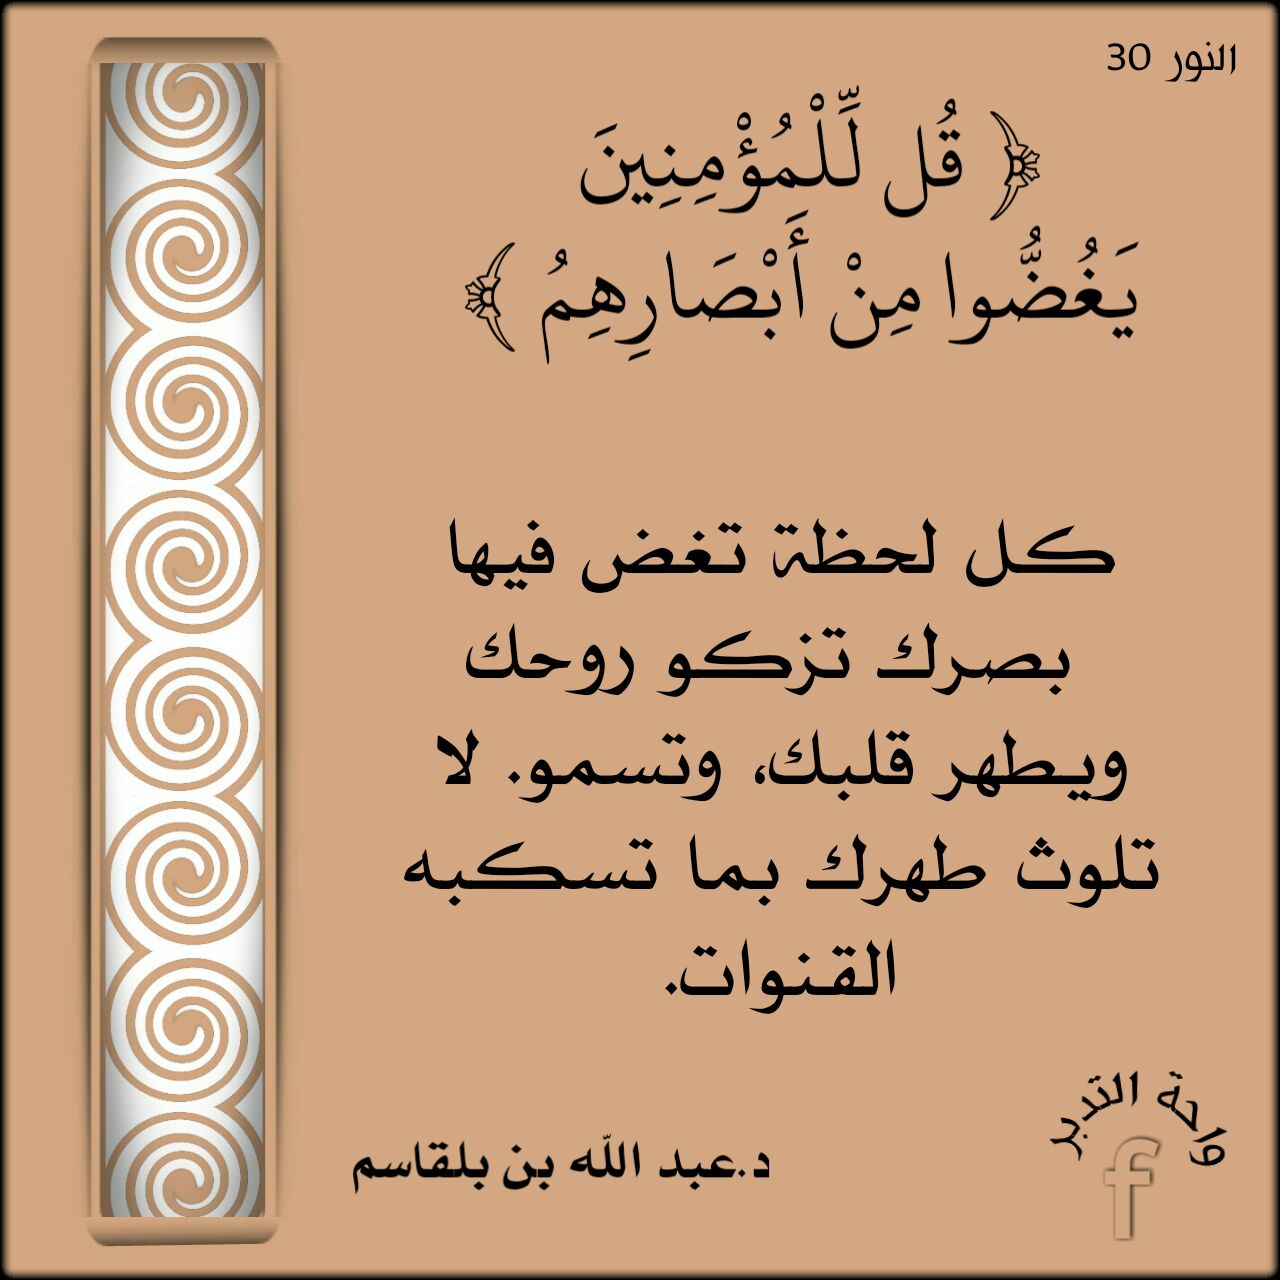 النور 30
﴿ قُل لِّلْمُؤْمِنِينَ
يَغُضُّوا مِنْ أَبْصَارِهِمُ ﴾
كل لحظة تغض فيها
بصرك تزكو روحك
ويطهر قلبك، وتسمو. لا
تلوث طهرك بما تسكبه
القنوات.
واحة التدبر
f
د.عبد الله بن بلقاسم